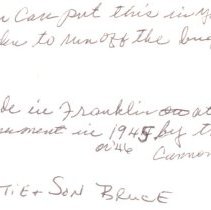 can put this in
to run off the
de in Franklin at
ument in 1945 by t
or '46
Cannon
TIE + SON BRUCE